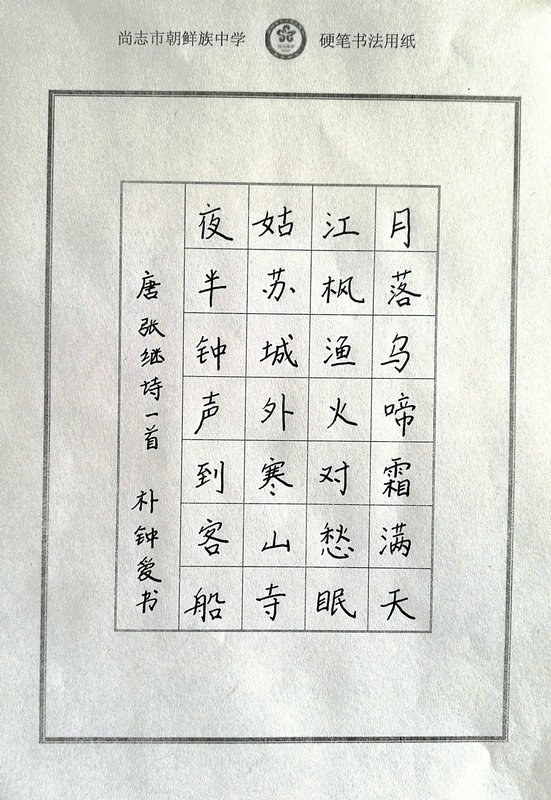 尚志市朝鲜族中学 硬笔书法用纸
月落乌啼霜满天
江枫渔火对愁眠
姑苏城外寒山寺
夜半钟声到客船
唐 张继诗一首 朴钟爱书